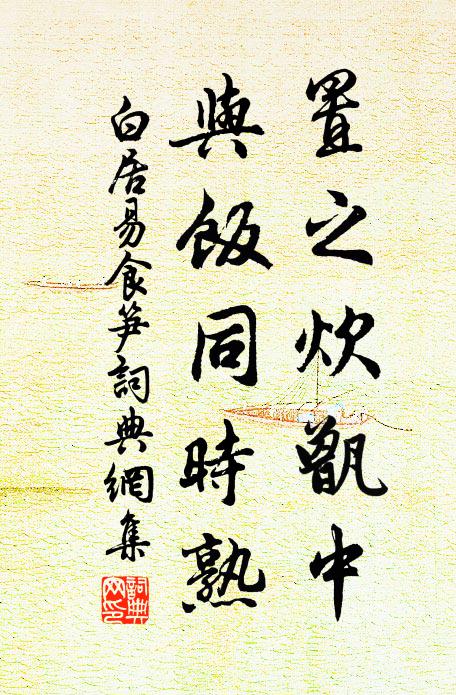 置之炊甑中
與飯同時熟
白居易食笋詞典網集
詞典网印